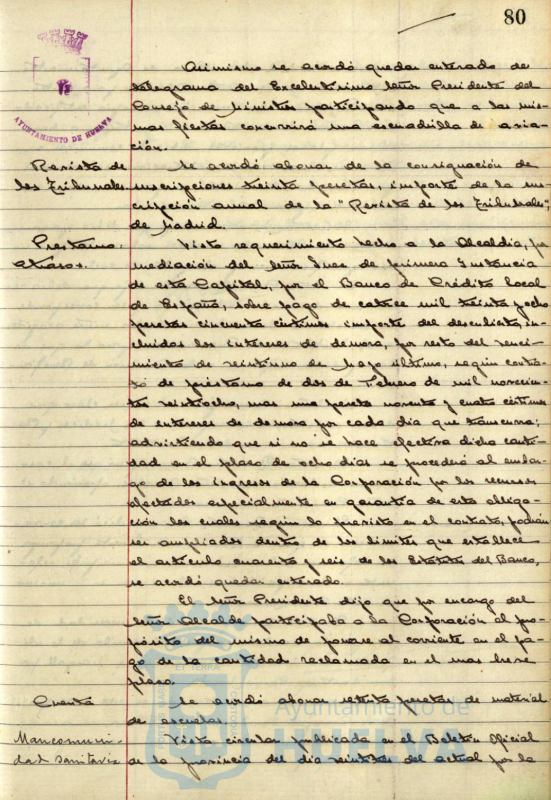 80
AYUNTAMIENTO DE HUELVA
Asimismo se acordó quedar enterado de
telegrama del Excelentísimo Señor Presidente del
Consejo de Ministros participando que a las mis-
mas fiestas concurrirá una escuadrilla de avia-
ción.
Revista de los Tribunales.
Se acordó abonar de la consignación de
suscripciones treinta pesetas, importe de la sus-
cripción anual de la "Revista de los Tribunales",
de Madrid.
Préstamo.
Atrasos.
Visto requerimiento hecho a la Alcaldía, por
mediación del Señor Juez de primera Instancia
de esta Capital, por el Banco de Crédito Local
de España, sobre pago de catorce mil treinta y ocho
pesetas cincuenta céntimos importe del descubierto, in-
cluidos los intereses de demora, por resto del venci-
miento de veintiuno de Mayo último, según contra-
tó de préstamo de dos de Febrero de mil novecien-
tos veintiocho, mas una peseta noventa y cuatro céntimos
de intereses de demora por cada día que transcurra;
advirtiendo que si no se hace efectiva dicha canti-
dad en el plazo de ocho días se procederá al embar-
go de los ingresos de la Corporación por los recursos
afectados especialmente en garantía de esta obliga-
ción los cuales según lo previsto en el contrato, podrán
ser ampliados dentro de los límites que establece
el artículo cuarenta y seis de los Estatutos del Banco,
se acordó quedar enterado.
El Señor Presidente dijo que por encargo del
Señor Alcalde participaba a la Corporación el pro-
pósito del mismo de ponerse al corriente en el pa-
go de la cantidad reclamada en el mas breve
plazo.
Cuenta
Se acordó abonar setenta pesetas de material
de escuelas.
Mancomuni-
dad Sanitaria
Vista circular publicada en el Boletín Oficial
de la provincia del día veintitres del actual por la
Ayuntamiento de
HUELVA